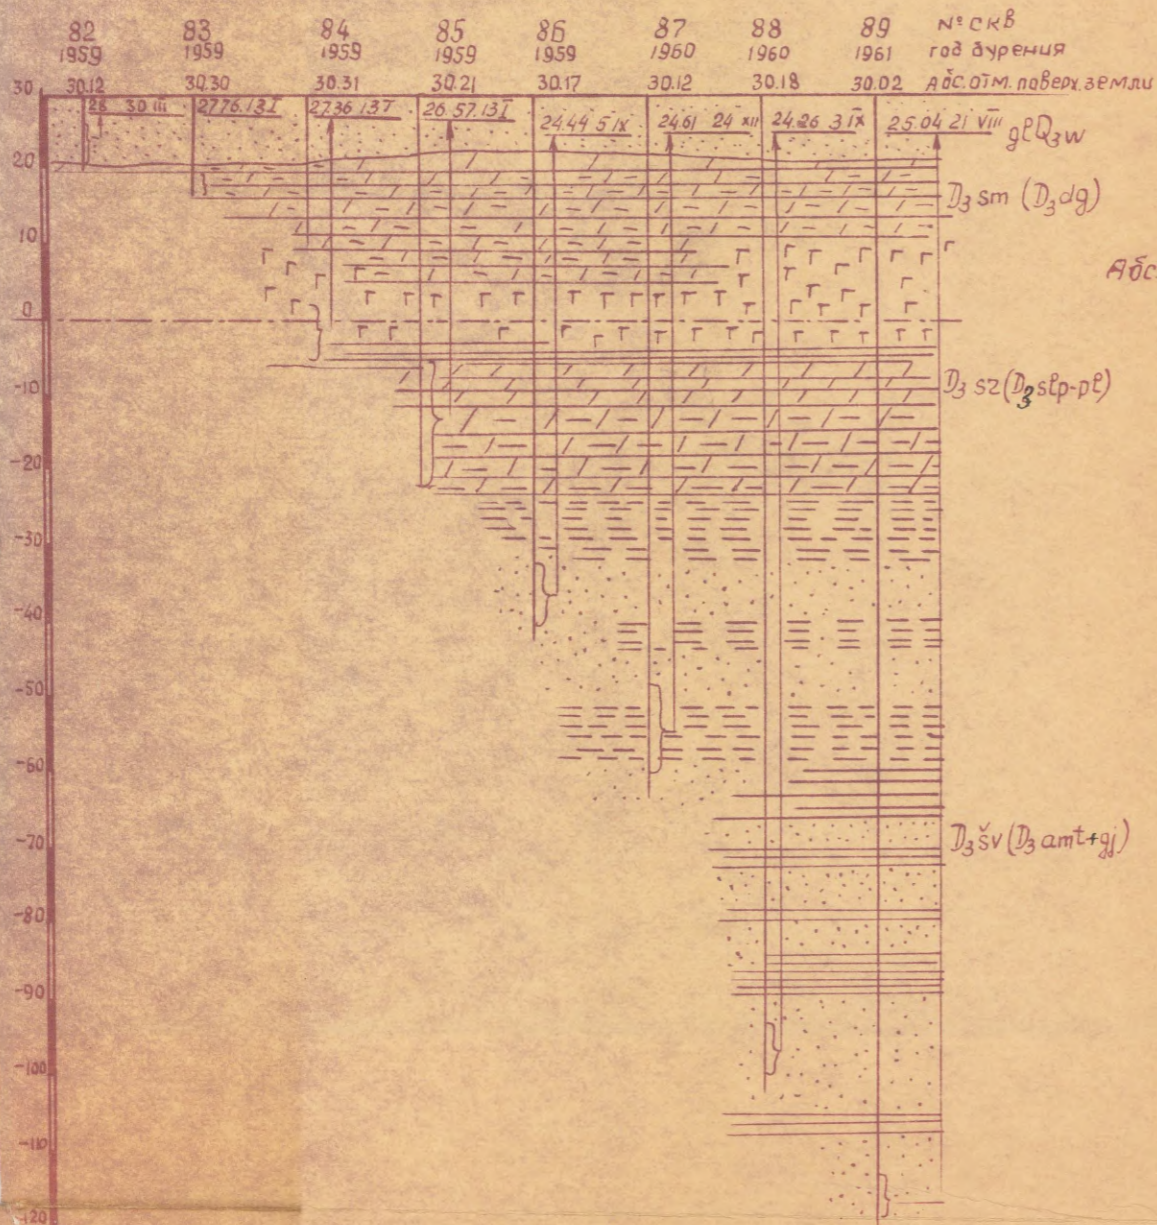 82 83 84 85 86 87 88 89 № СКВ
1959 1959 1959 1959 1959 1960 1960 1961 год бурения
30.12 30.30 30.31 30.21 30.17 30.12 30.18 30.02 Абс. отм. поверх. земли
30
26 30 III 27.76. 13 I 27.36 13 I 26.57. 13 I 24.44 5 IX 24.61 24 XII 24.26 3 IX 25.04 21 VIII glQ₃w
20
D₃sm (D₃dg)
10
Абс.
0
-10 D₃sz (D₃slp-pl)
-20
-30
-40
-50
-60
-70 D₃šv (D₃amt+gj)
-80
-90
-100
-110
-120